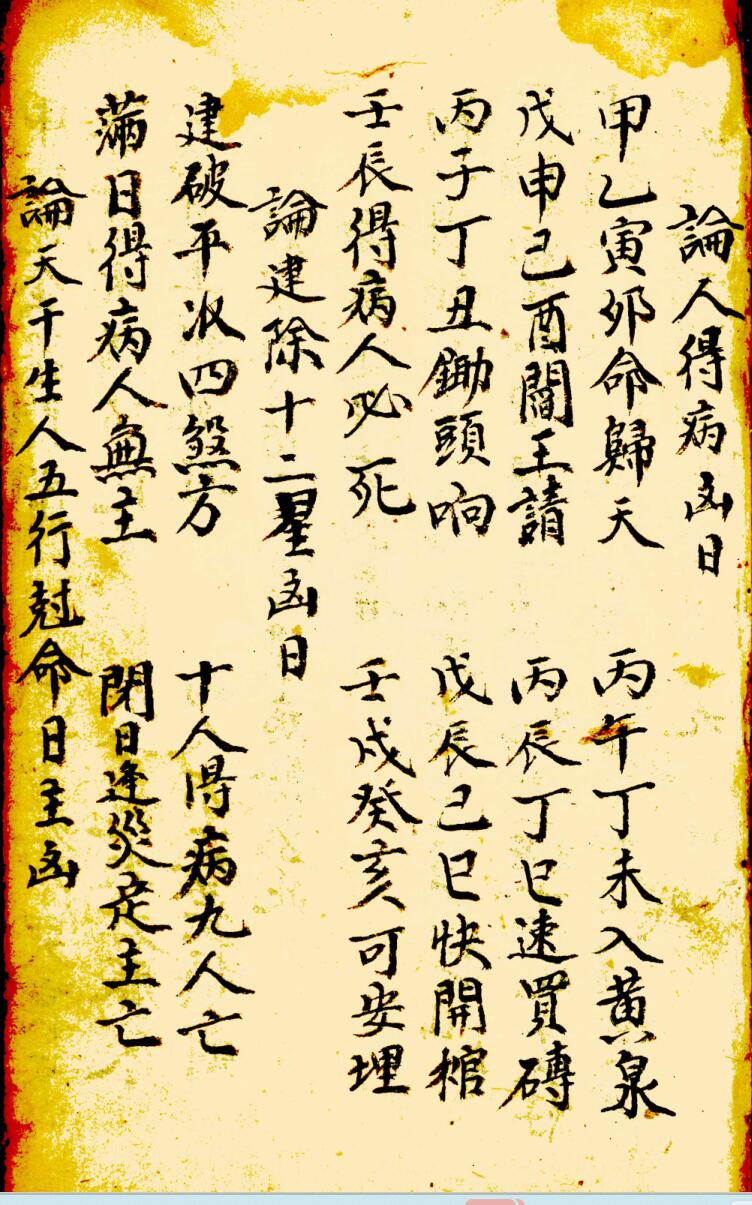 論人得病凶日
甲乙寅卯命歸天 丙午丁未入黄泉
戊申己酉閻王請 丙辰丁巳速買磚
丙子丁丑鋤頭响 戊辰己巳快開棺
壬辰得病人必死 壬戌癸亥可安埋
論建除十二星凶日
建破平收四煞方 十人得病九人亡
滿日得病人無主 閉日逢災定主亡
論天干生人五行尅命日主凶